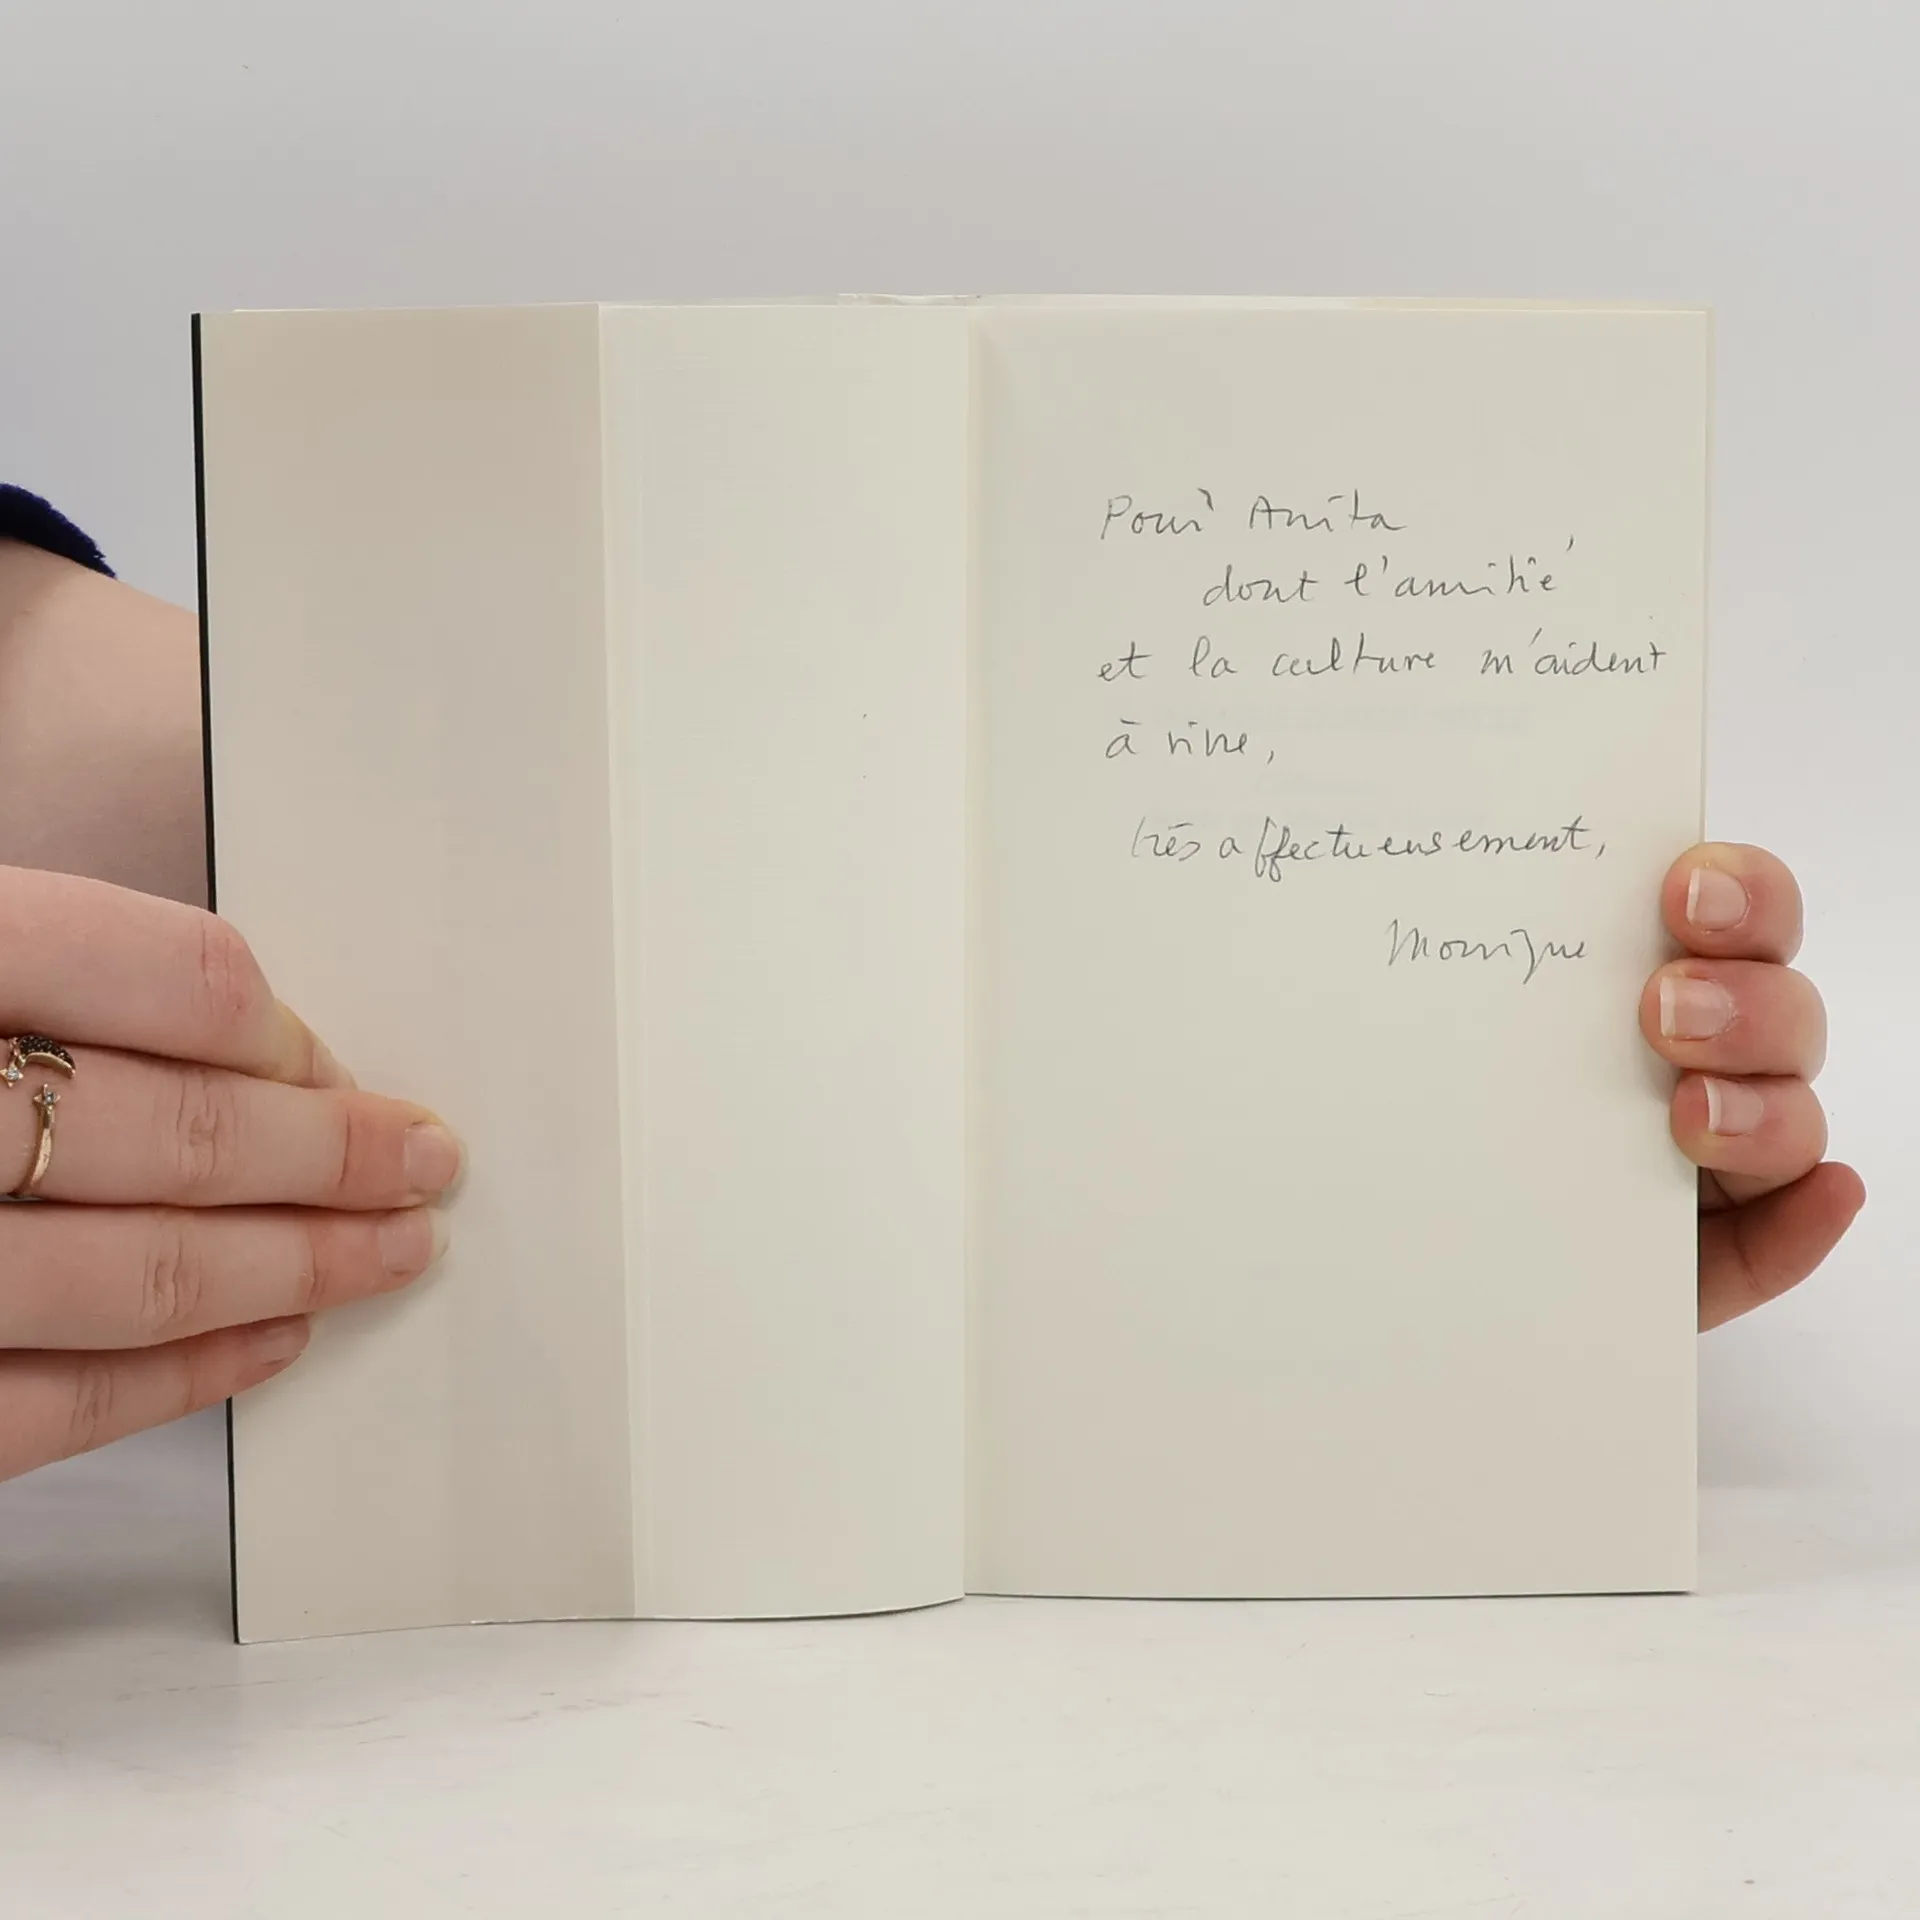 Pour Anita
dont l'amitié
et la culture m'aident
à vivre,
très affectueusement,
Monique